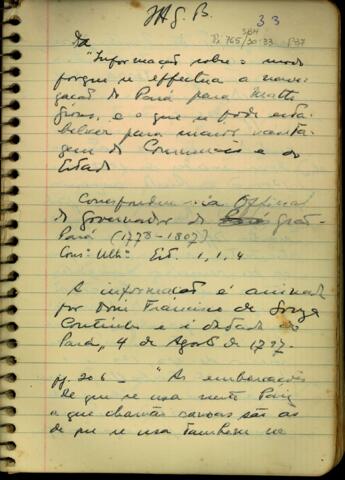 I H g. B. 33
Pi 765/30:33 P37
Da
"Informação sobre o modo
porque se effectua a nave-
gação do Pará para Matto
Grosso, e o que se pode esta-
belecer para maior vanta-
gem do Commercio e do
Estado
Correspondencia Official
do Governador do Grão-
Pará (1773-1807)
Cons: Ult: Est. 1, 1, 4
A informação é assinada
por Dom Francisco de Souza
Coutinho e é datada do
Pará, 4 de Agosto de 1797.
pg. 206 - "As embarcações
de que se usa neste Paiz
a que chamão canoas são as
de que se usa tambem no